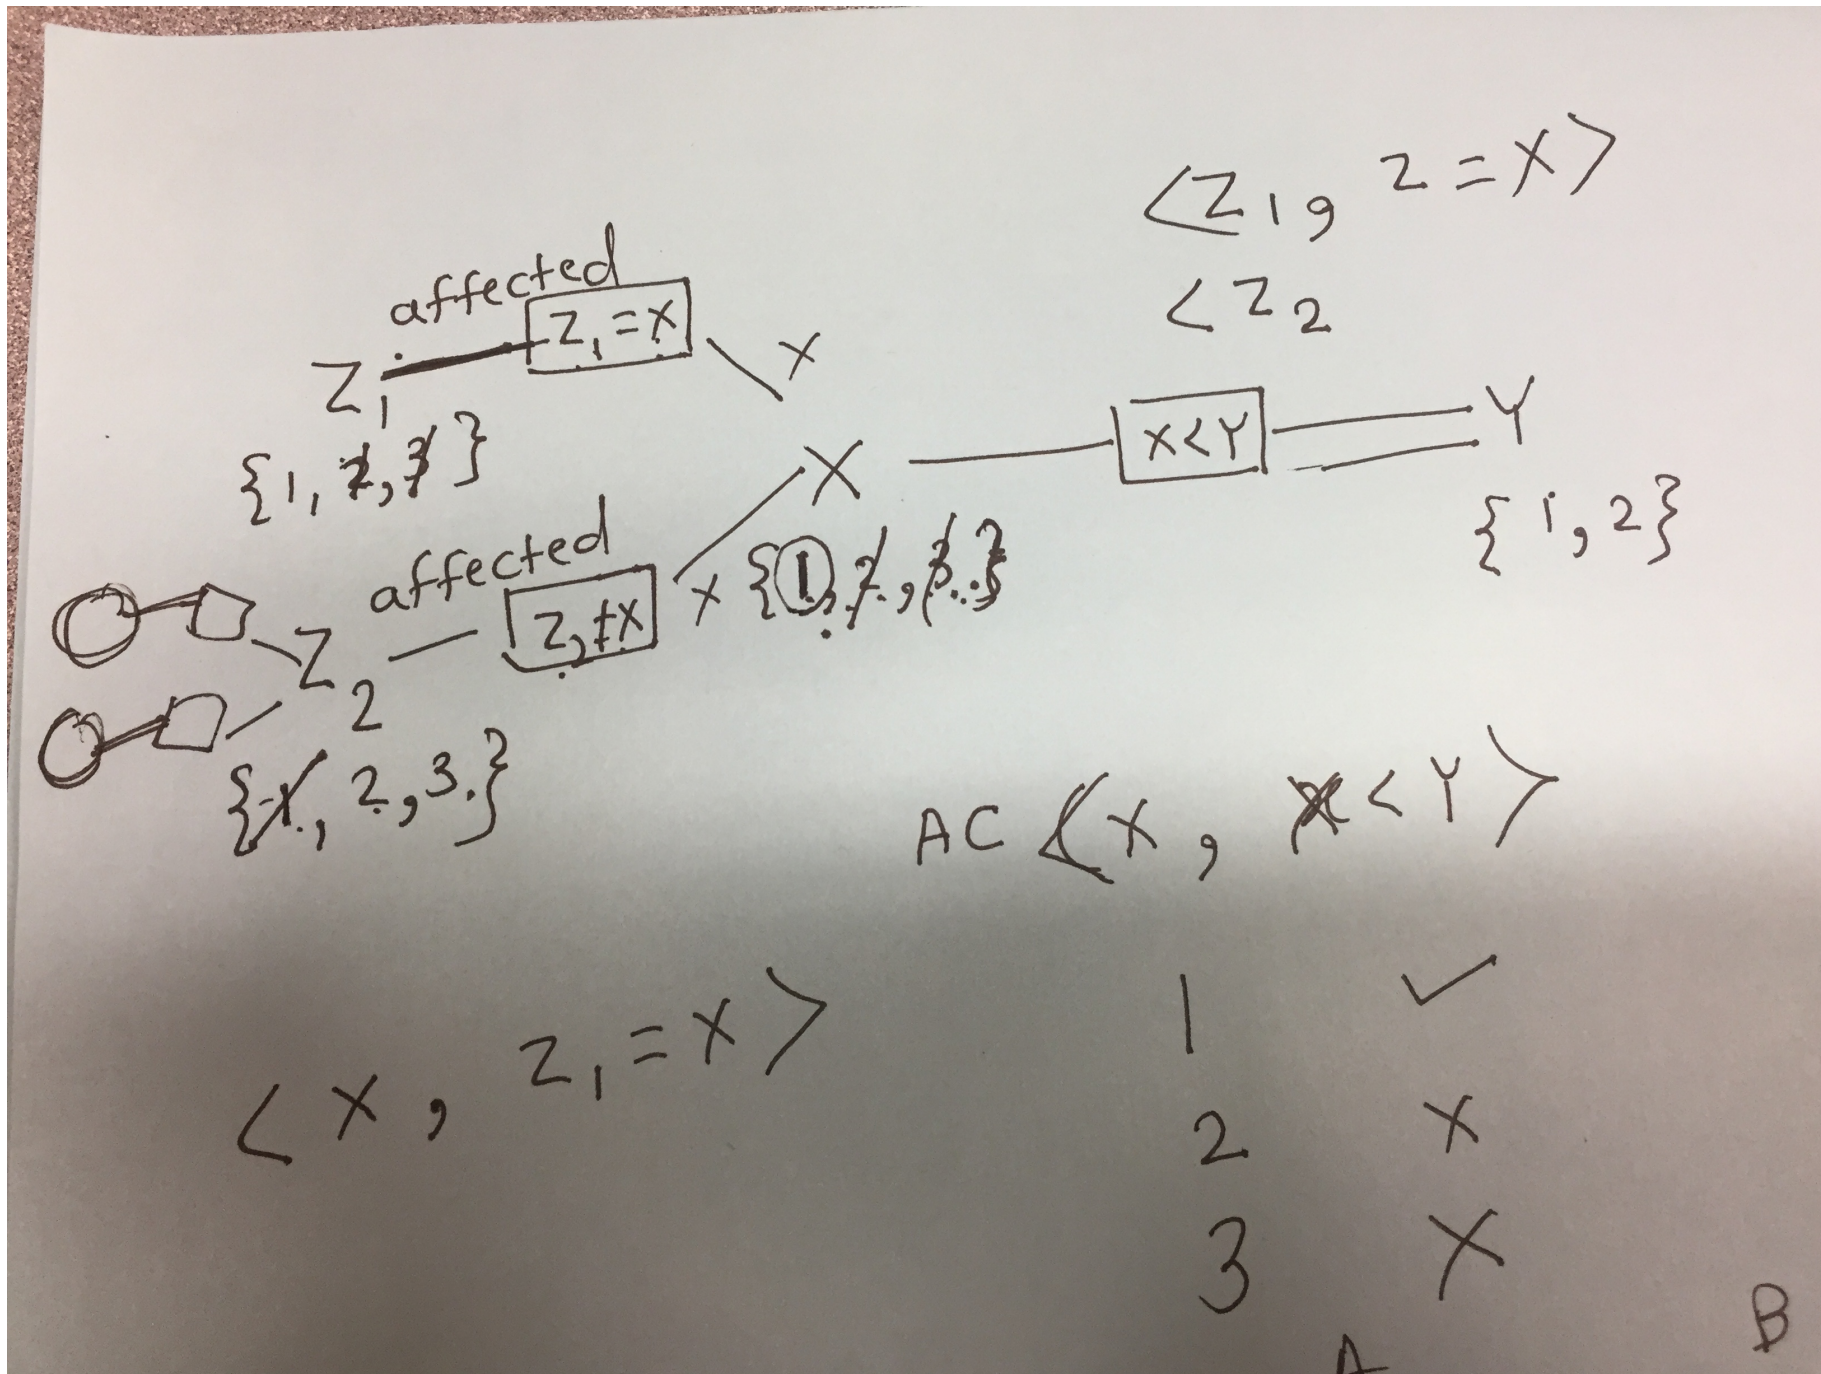 <Z1, Z=X>
<Z2
affected
Z1=X
X
Z1
{1, 2, 3}
X<Y
Y
{1, 2}
X
affected
Z2≠X
X
{1, 2, 3}
Z2
{1, 2, 3}
AC <X, X<Y>
<X, Z1=X>
1 ✓
2 X
3 X
A
B